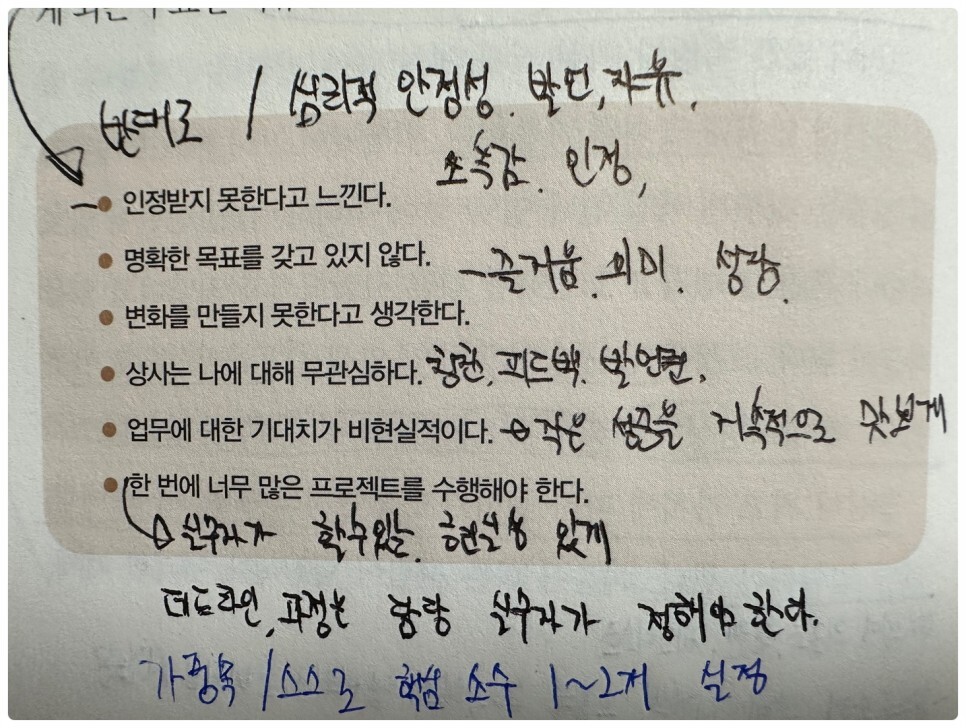 반대로 / 심리적 안정성. 발언, 자유,
소속감. 인정,
인정받지 못한다고 느낀다.
명확한 목표를 갖고 있지 않다.
- 즐거움. 의미. 성장.
변화를 만들지 못한다고 생각한다.
상사는 나에 대해 무관심하다. 칭찬, 피드백, 발언권,
업무에 대한 기대치가 비현실적이다. 작은 성공을 지속적으로 맛보게
한 번에 너무 많은 프로젝트를 수행해야 한다.
실무자가 할 수 있는 현실성 있게
데드라인, 과정는 항상 실무자가 정해야 한다.
/ 스스로 핵심 소수 1~2개 설정